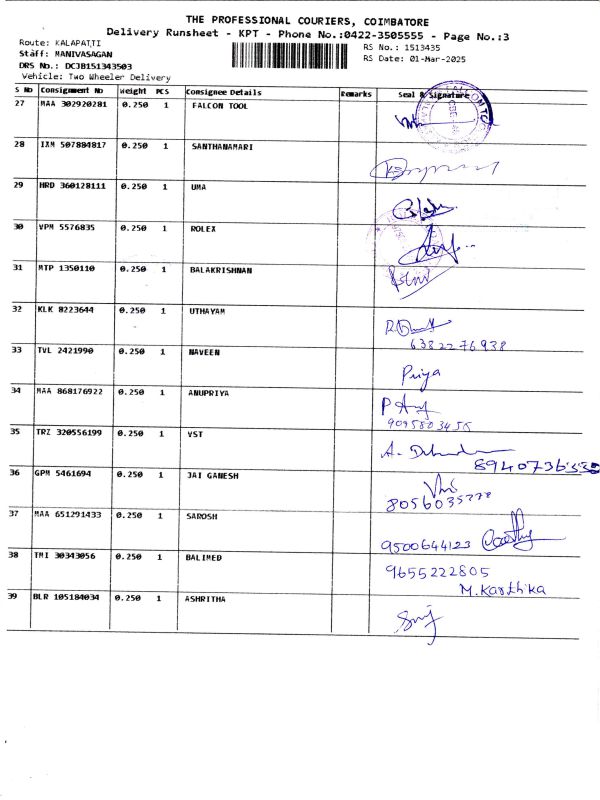 THE PROFESSIONAL COURIERS, COIMBATORE
Delivery Runsheet - KPT - Phone No.:0422-3505555 - Page No.:3
Route: KALAPATTI
RS No.: 1513435
Staff: MANIVASAGAN
RS Date: 01-Mar-2025
DRS No.: DCJB151343503
Vehicle: Two Wheeler Delivery
S No Consignment No Weight PCS Consignee Details Remarks Seal & Signature
27 MAA 302920281 0.250 1 FALCON TOOL
28 IXM 507884817 0.250 1 SANTHANAMARI
29 HRD 360128111 0.250 1 UMA
30 VPM 5576835 0.250 1 ROLEX
31 MTP 1350110 0.250 1 BALAKRISHNAN
32 KLK 8223644 0.250 1 UTHAYAM
6382276938
33 TVL 2421990 0.250 1 NAVEEN
Priya
34 MAA 868176922 0.250 1 ANUPRIYA
35 TRZ 320556199 0.250 1 VST
36 GPM 5461694 0.250 1 JAI GANESH
37 MAA 651291433 0.250 1 SAROSH
9500644123
38 TMI 30343056 0.250 1 BALIMED
9655222805
M.Karthika
39 BLR 105184034 0.250 1 ASHRITHA